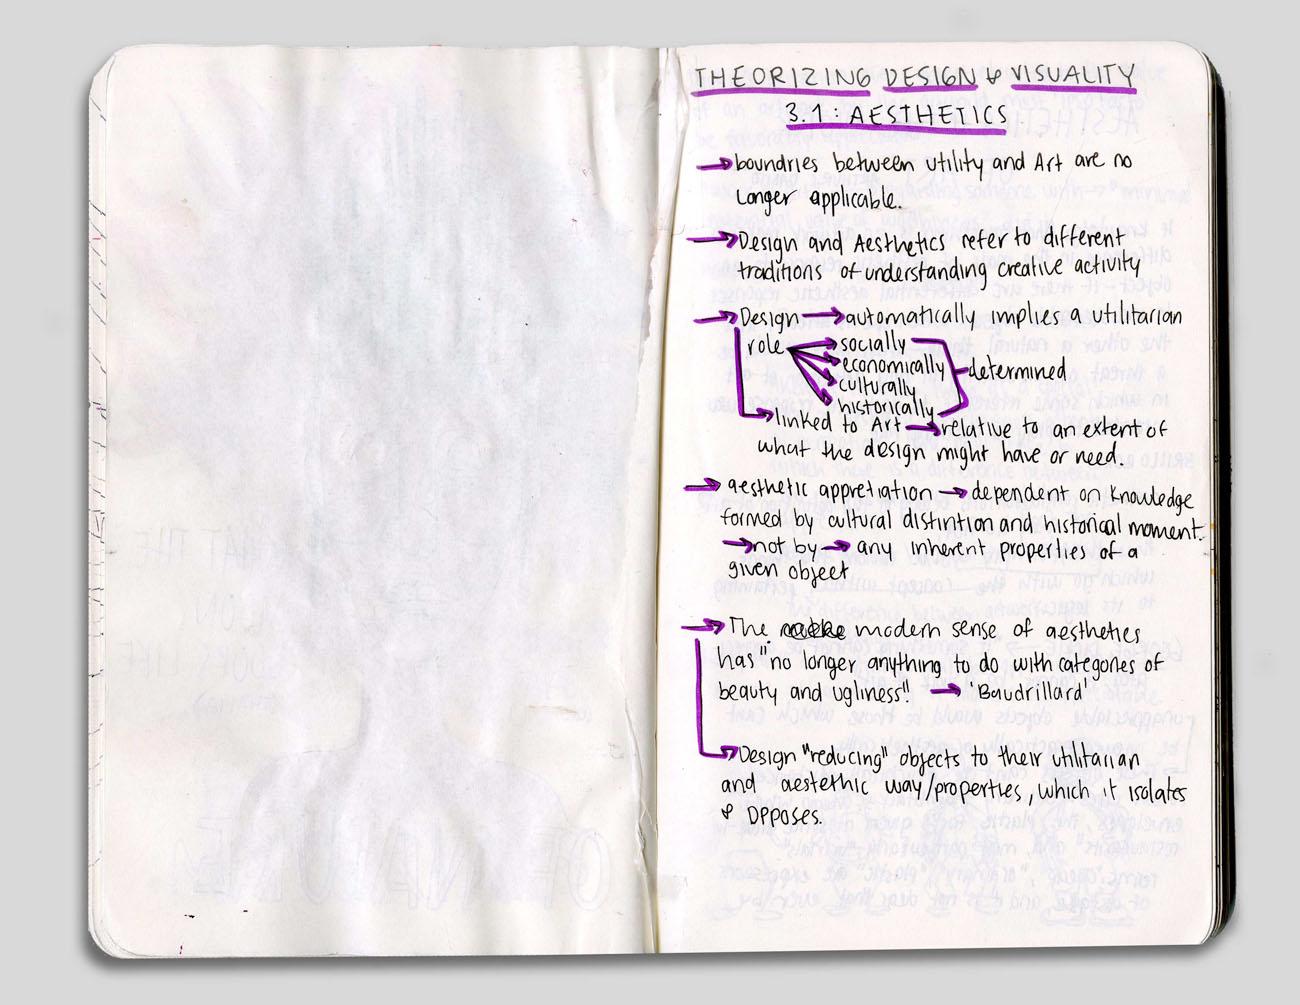 THEORIZING DESIGN & VISUALITY
3.1: AESTHETICS
→ boundries between utility and Art are no
longer applicable.
→ Design and Aesthetics refer to different
traditions of understanding creative activity
→ Design → automatically implies a utilitarian
role → socially
→ economically
→ culturally
→ historically
determined
→ linked to Art → relative to an extent of
what the design might have or need.
→ aesthetic appretiation → dependent on knowledge
formed by cultural distintion and historical moment.
→ not by → any inherent properties of a
given object
→ The modern sense of aesthetics
has "no longer anything to do with categories of
beauty and ugliness". → 'Baudrillard'
→ Design "reducing" objects to their utilitarian
and aestethic way/properties, which it isolates
& opposes.